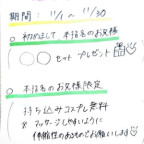 期間： 11/1 〜 11/30
○ 初めまして 本指名のお客様
( ○○セット プレゼント
○ 本指名のお客様限定
( 持ち込みコスプレ無料
※ マッサージしやすいように
伸縮性のあるものでお願いします